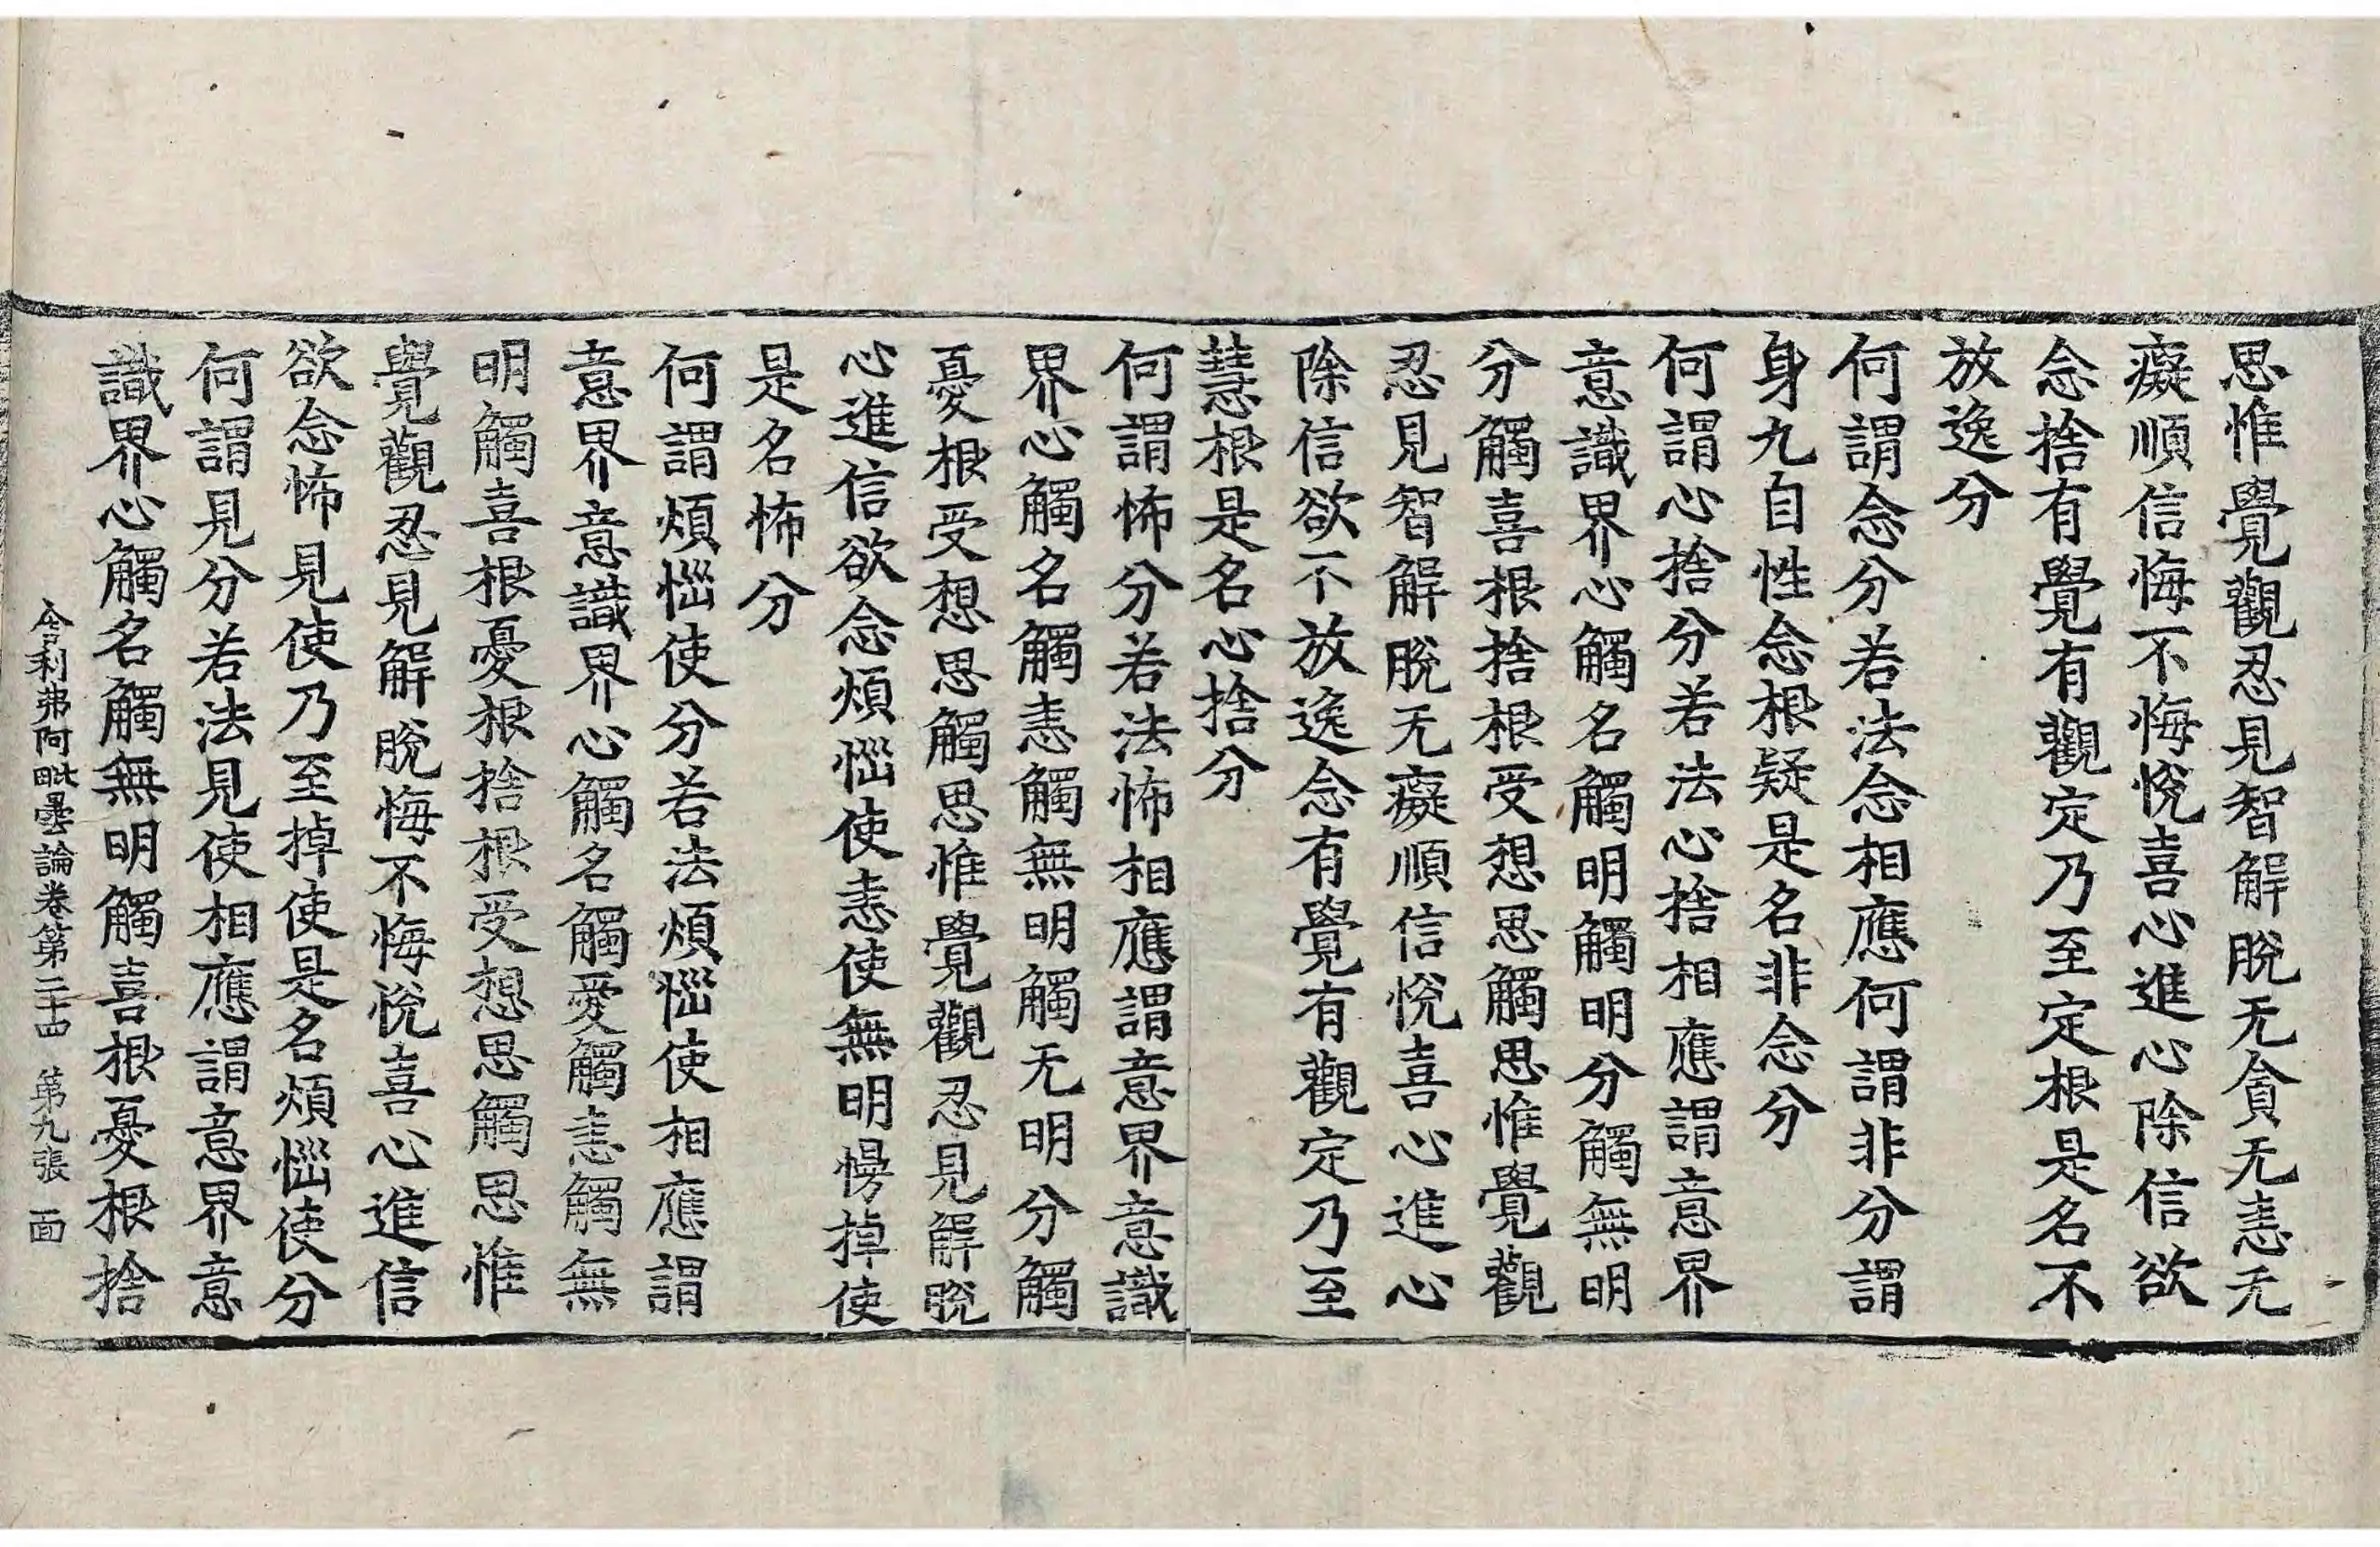 思惟覺觀忍見智解脫无貪无恚无
癡順信悔不悔悅喜心進心除信欲
念捨有覺有觀定乃至定根是名不
放逸分
何謂念分若法念相應何謂非分謂
身九自性念根疑是名非念分
何謂心捨分若法心捨相應謂意界
意識界心觸名觸明觸明分觸無明
分觸喜根捨根受想思觸思惟覺觀
忍見智解脫无癡順信悅喜心進心
除信欲不放逸念有覺有觀定乃至
慧根是名心捨分
何謂怖分若法怖相應謂意界意識
界心觸名觸恚觸無明觸无明分觸
憂根受想思觸思惟覺觀忍見解脫
心進信欲念煩惱使恚使無明慢掉使
是名怖分
何謂煩惱使分若法煩惱使相應謂
意界意識界心觸名觸愛觸恚觸無
明觸喜根憂根捨根受想思觸思惟
覺觀忍見解脫悔不悔悅喜心進信
欲念怖見使乃至掉使是名煩惱使分
何謂見分若法見使相應謂意界意
識界心觸名觸無明觸喜根憂根捨
舍利弗阿毗曇論卷第二十四 第九張 面